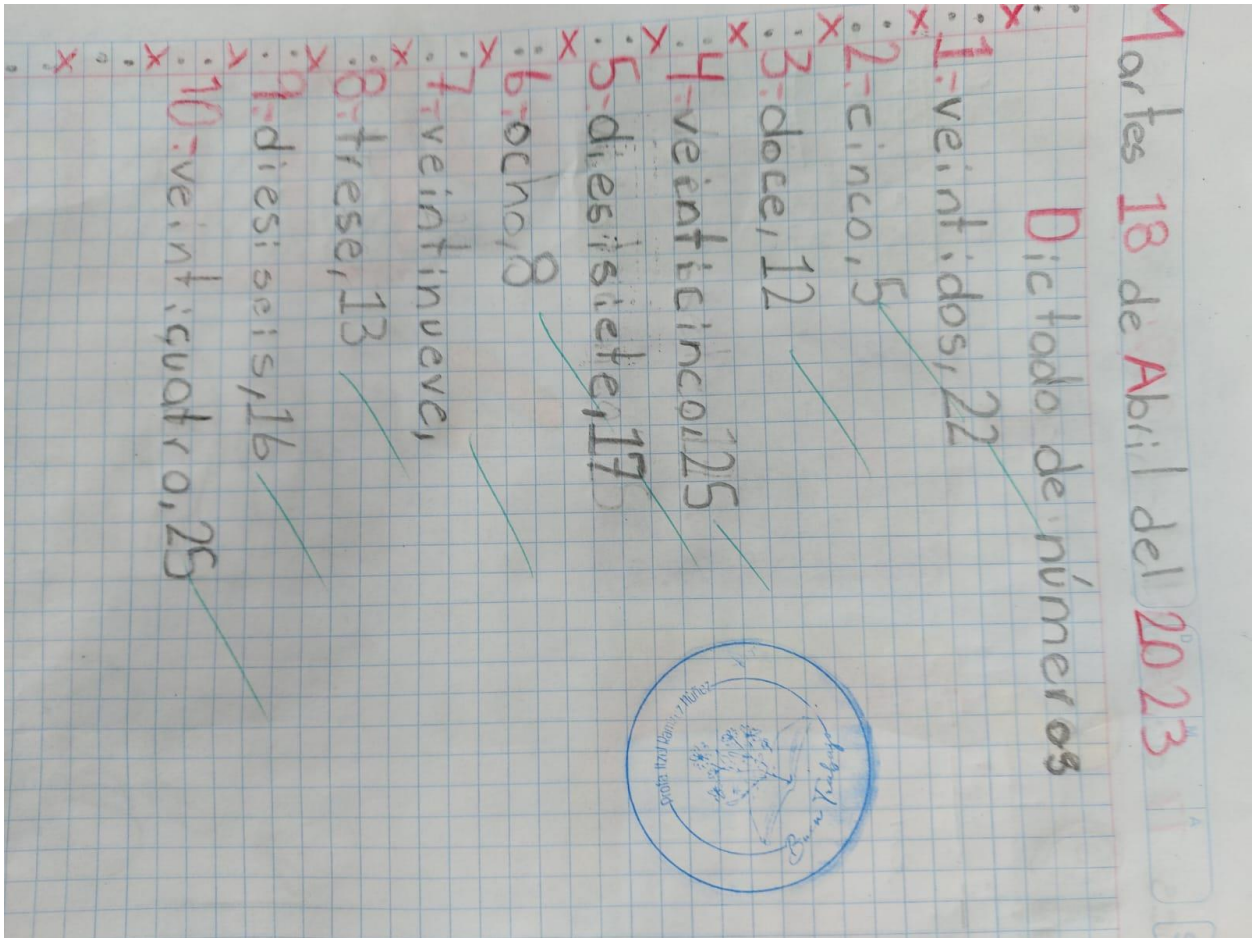 Martes 18 de Abril del 2023
Dictado de números
1.-veintidos, 22
2-cinco, 5
3-doce, 12
4-veinticinco, 25
5-diesisiete, 17
6-ocho, 8
7-veintinueve,
8-trese, 13
9-diesiseis, 16
10-veintiquatro, 25
Buen Trabajo